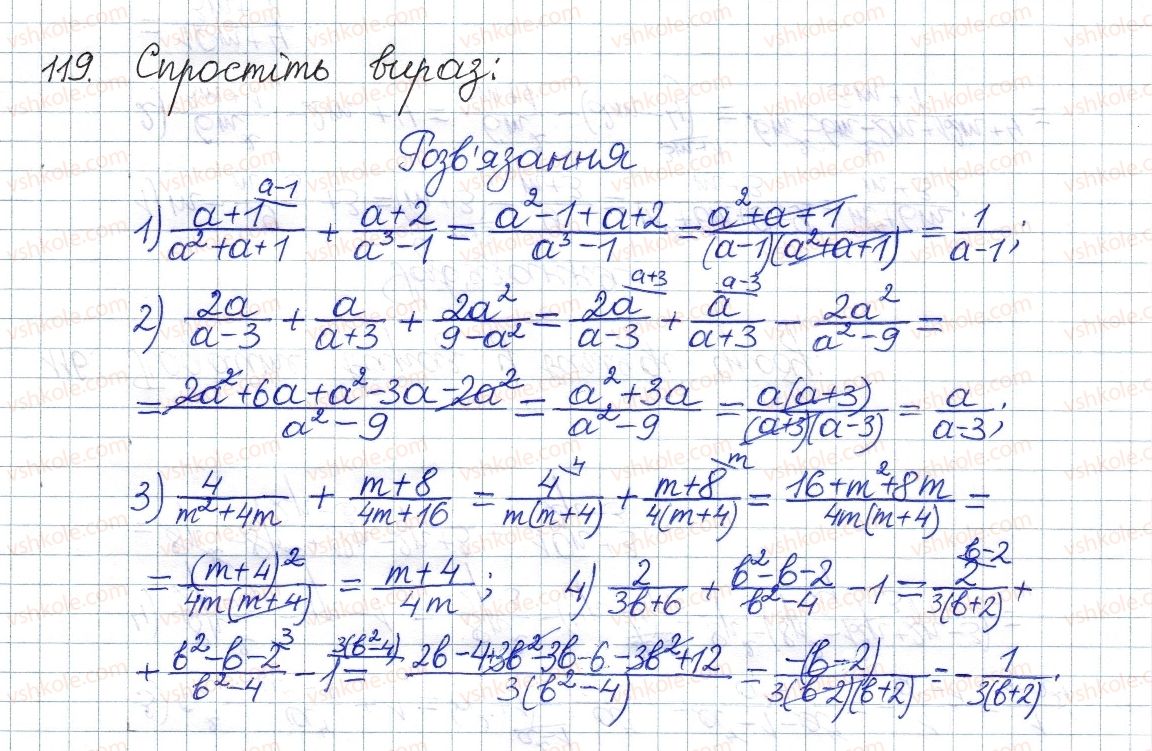 119. Спростіть вираз:
Розв'язання
1) (a+1)/(a²+a+1) ^(a-1) + (a+2)/(a³-1) = (a²-1+a+2)/(a³-1) = (a²+a+1)/((a-1)(a²+a+1)) = 1/(a-1);
2) 2a/(a-3) + a/(a+3) + 2a²/(9-a²) = 2a/(a-3) ^(a+3) + a/(a+3) ^(a-3) - 2a²/(a²-9) =
= (2a²+6a+a²-3a-2a²)/(a²-9) = (a²+3a)/(a²-9) = a(a+3)/((a+3)(a-3)) = a/(a-3);
3) 4/(m²+4m) + (m+8)/(4m+16) = 4/(m(m+4)) ^4 + (m+8)/(4(m+4)) ^m = (16+m²+8m)/(4m(m+4)) =
= (m+4)²/(4m(m+4)) = (m+4)/(4m); 4) 2/(3b+6) + (b²-b-2)/(b²-4) - 1 = 2/(3(b+2)) ^(b-2) +
+ (b²-b-2)/(b²-4) ^3 - 1 ^(3(b²-4)) = (2b-4+3b²-3b-6-3b²+12)/(3(b²-4)) = -(b-2)/(3(b-2)(b+2)) = -1/(3(b+2)).
vshkole.com